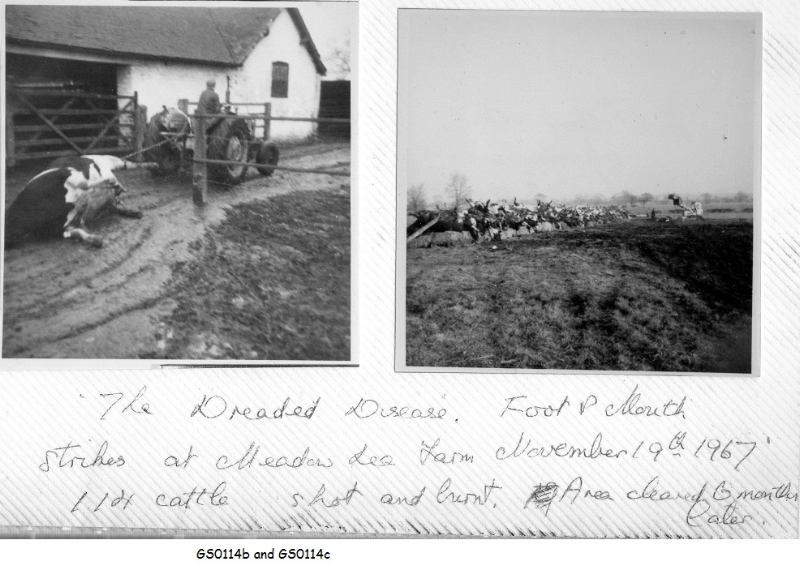 'The Dreaded Disease. Foot & Mouth
strikes at Meadow Lea Farm November 19th 1967'
114 cattle shot and burnt. Area cleared 6 months
later.
GS0114b and GS0114c